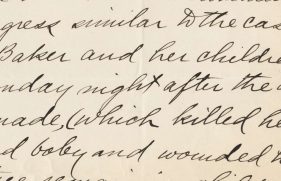 gress similar to the cas
Baker and her childre
nday night after the
made, (which killed he
d baby and wounded